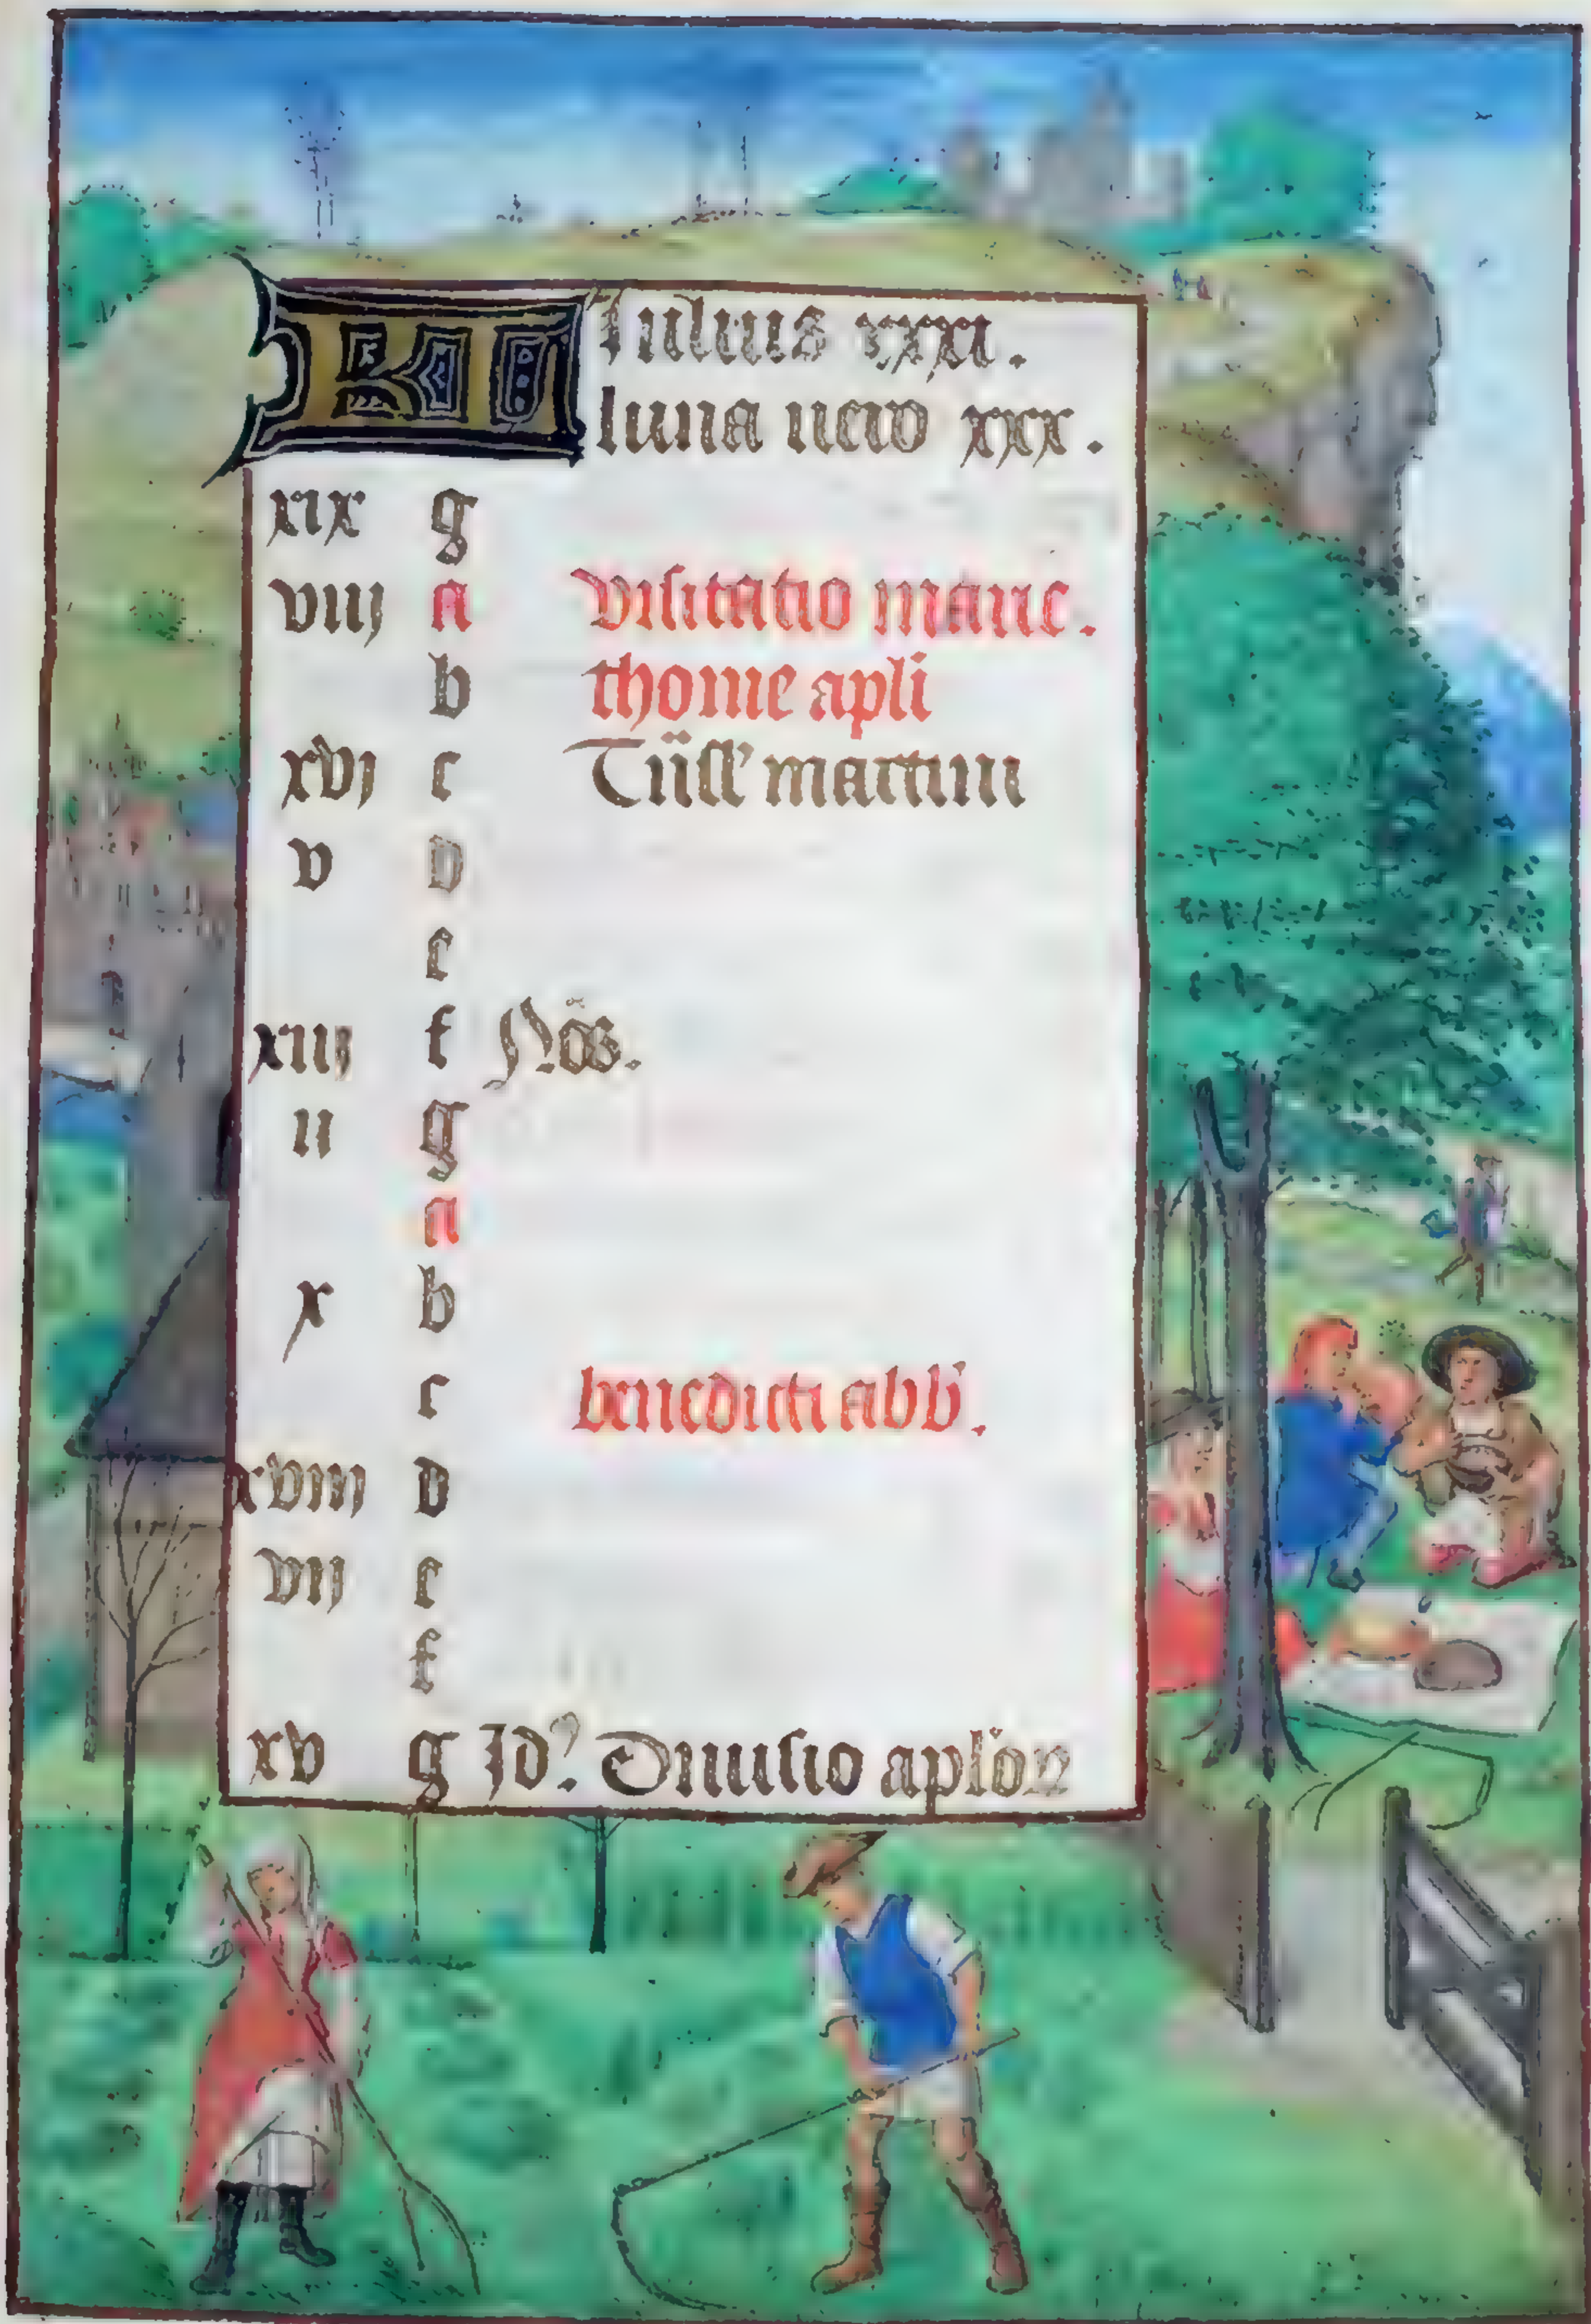 KL Iulius xxxi.
luna uero xxx.
xix g
viij a visitatio marie.
b thome apli
xvj c Trãsl' martini
v d
e
xiij f Noñ.
ii g
a
x b
c benedicti abb'.
xviij d
vij e
f
xv g Id'. Diuisio aplõꝝ